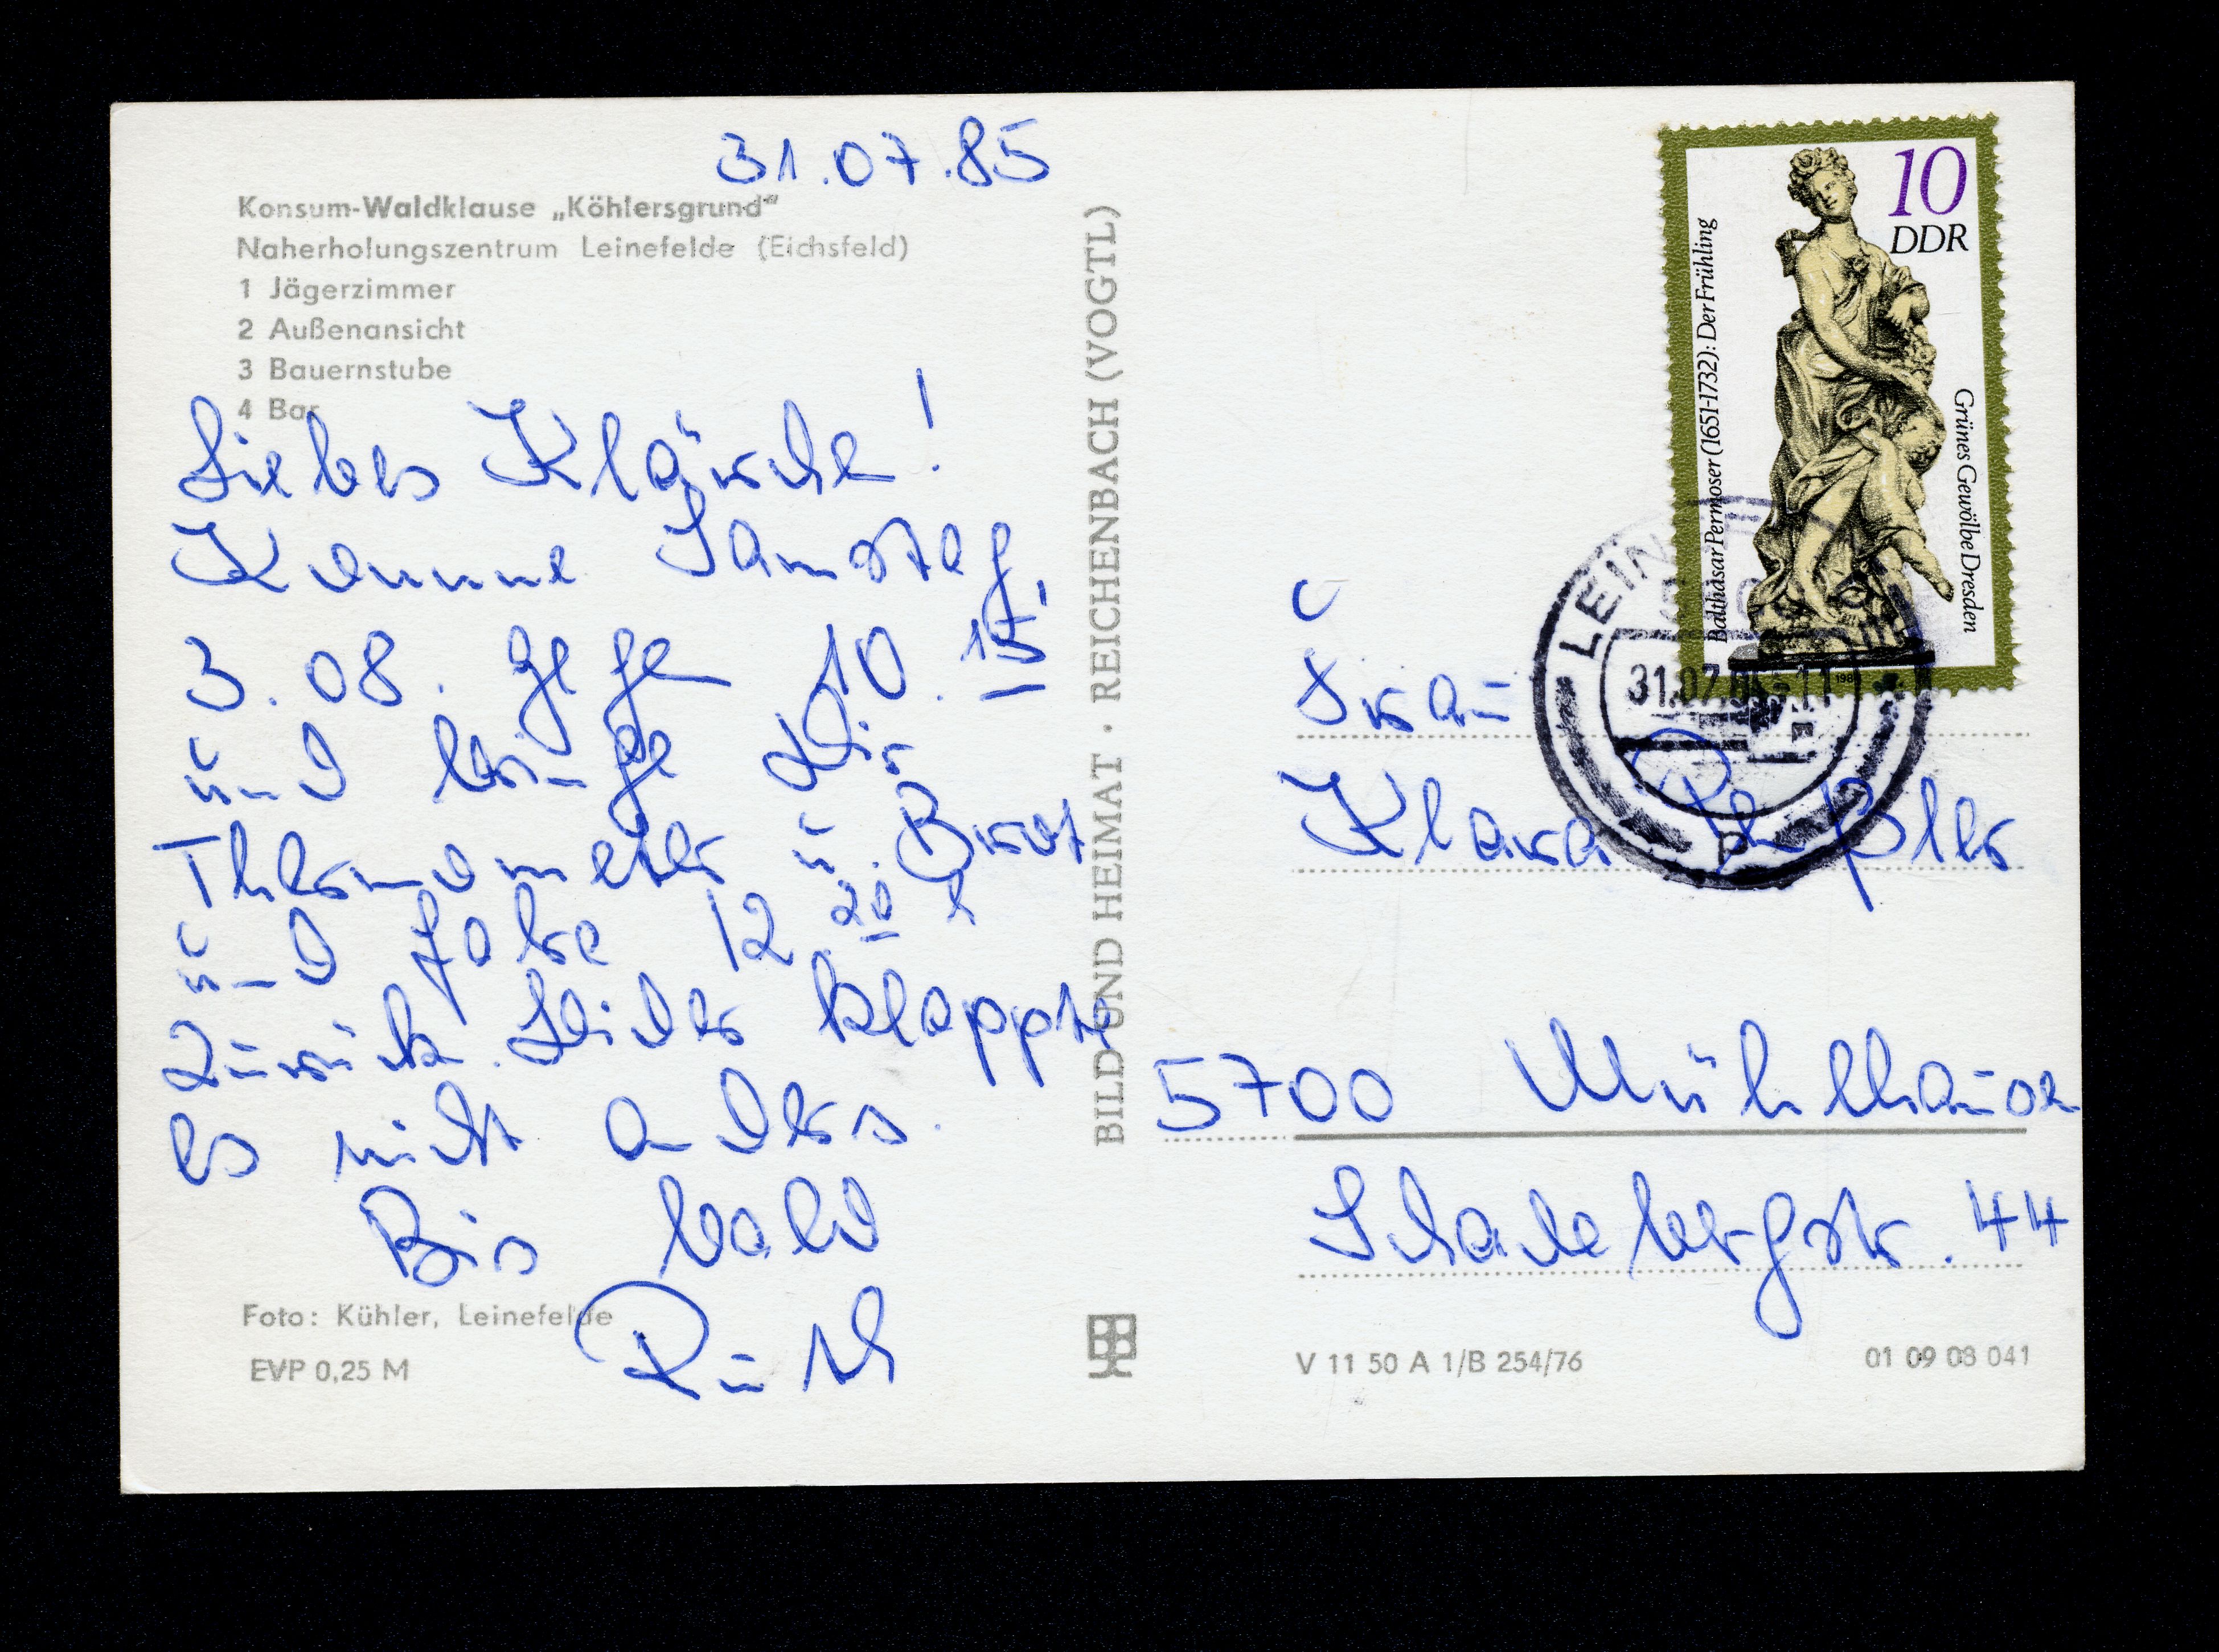 31.07.85
Konsum-Waldklause „Köhlersgrund"
Naherholungszentrum Leinefelde (Eichsfeld)
1 Jägerzimmer
2 Außenansicht
3 Bauernstube
4 Bar
Liebes Klärche!
Komme Samstag,
3.08. gegen 10.15
und bringe Dir
Thermometer u. Brot
und fahre 12 20
zurück. Leider klappte
es nicht anders.
Bis bald
Ruth
Foto: Kühler, Leinefelde
EVP 0,25 M
BILD UND HEIMAT · REICHENBACH (VOGTL)
10
DDR
Balthasar Permoser (1651-1732): Der Frühling
Grünes Gewölbe Dresden
31.07.85-11
Frau
Klara
5700 Mühlhausen
Schadebergstr. 44
V 11 50 A 1/B 254/76
01 09 08 041